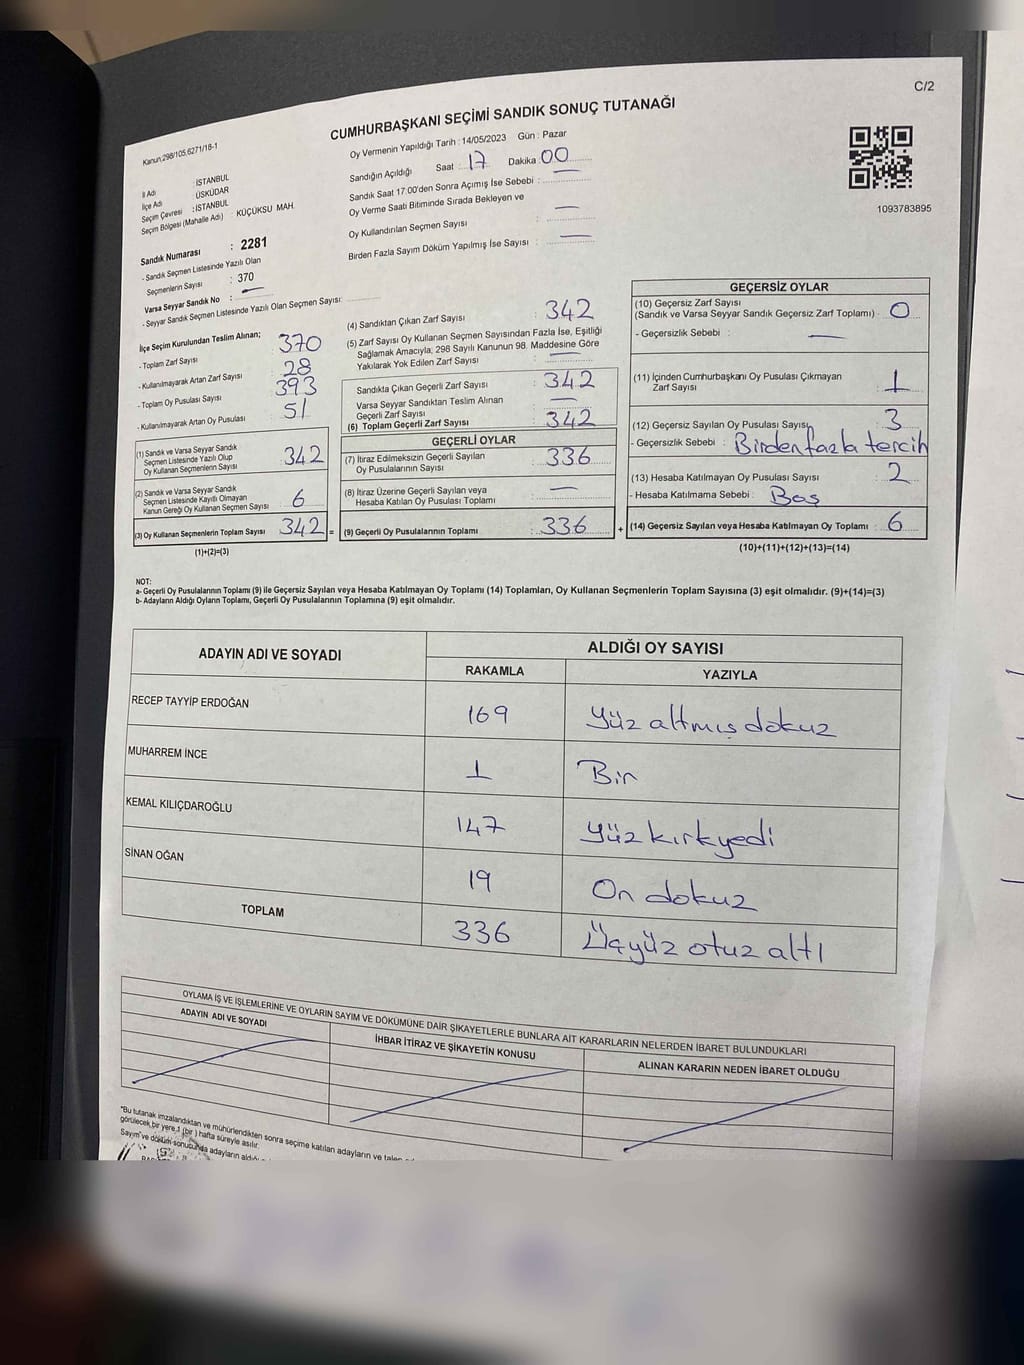 C/2
CUMHURBAŞKANI SEÇİMİ SANDIK SONUÇ TUTANAĞI
Kanun,298/105,6271/18-1
Oy Vermenin Yapıldığı Tarih : 14/05/2023 Gün : Pazar
Sandığın Açıldığı Saat : 17 Dakika : 00
Sandık Saat 17:00'den Sonra Açımış İse Sebebi : —
Oy Verme Saati Bitiminde Sırada Bekleyen ve
Oy Kullandırılan Seçmen Sayısı : —
Birden Fazla Sayım Döküm Yapılmış İse Sayısı : —
1093783895
İl Adı : İSTANBUL
İlçe Adı : ÜSKÜDAR
Seçim Çevresi : İSTANBUL
Seçim Bölgesi (Mahalle Adı) : KÜÇÜKSU MAH.
Sandık Numarası : 2281
- Sandık Seçmen Listesinde Yazılı Olan
Seçmenlerin Sayısı : 370
Varsa Seyyar Sandık No : —
- Seyyar Sandık Seçmen Listesinde Yazılı Olan Seçmen Sayısı:
İlçe Seçim Kurulundan Teslim Alınan;
- Toplam Zarf Sayısı 370
- Kullanılmayarak Artan Zarf Sayısı 28
- Toplam Oy Pusulası Sayısı 393
- Kullanılmayarak Artan Oy Pusulası 51
(1) Sandık ve Varsa Seyyar Sandık
Seçmen Listesinde Yazılı Olup
Oy Kullanan Seçmenlerin Sayısı 342
(2) Sandık ve Varsa Seyyar Sandık
Seçmen Listesinde Kayıtlı Olmayan
Kanun Gereği Oy Kullanan Seçmen Sayısı 6
(3) Oy Kullanan Seçmenlerin Toplam Sayısı 342 =
(1)+(2)=(3)
(4) Sandıktan Çıkan Zarf Sayısı : 342
(5) Zarf Sayısı Oy Kullanan Seçmen Sayısından Fazla İse, Eşitliği
Sağlamak Amacıyla; 298 Sayılı Kanunun 98. Maddesine Göre
Yakılarak Yok Edilen Zarf Sayısı : —
Sandıkta Çıkan Geçerli Zarf Sayısı : 342
Varsa Seyyar Sandıktan Teslim Alınan
Geçerli Zarf Sayısı : —
(6) Toplam Geçerli Zarf Sayısı : 342
GEÇERLİ OYLAR
(7) İtiraz Edilmeksizin Geçerli Sayılan
Oy Pusulalarının Sayısı : 336
(8) İtiraz Üzerine Geçerli Sayılan veya
Hesaba Katılan Oy Pusulası Toplamı : —
(9) Geçerli Oy Pusulalarının Toplamı : 336 +
GEÇERSİZ OYLAR
(10) Geçersiz Zarf Sayısı
(Sandık ve Varsa Seyyar Sandık Geçersiz Zarf Toplamı) : 0
- Geçersizlik Sebebi : —
(11) İçinden Cumhurbaşkanı Oy Pusulası Çıkmayan
Zarf Sayısı : 1
(12) Geçersiz Sayılan Oy Pusulası Sayısı : 3
- Geçersizlik Sebebi : Birden fazla tercih
(13) Hesaba Katılmayan Oy Pusulası Sayısı : 2
- Hesaba Katılmama Sebebi : Boş
(14) Geçersiz Sayılan veya Hesaba Katılmayan Oy Toplamı : 6
(10)+(11)+(12)+(13)=(14)
NOT:
a- Geçerli Oy Pusulalarının Toplamı (9) ile Geçersiz Sayılan veya Hesaba Katılmayan Oy Toplamı (14) Toplamları, Oy Kullanan Seçmenlerin Toplam Sayısına (3) eşit olmalıdır. (9)+(14)=(3)
b- Adayların Aldığı Oyların Toplamı, Geçerli Oy Pusulalarının Toplamına (9) eşit olmalıdır.
ADAYIN ADI VE SOYADI ALDIĞI OY SAYISI
RAKAMLA YAZIYLA
RECEP TAYYİP ERDOĞAN 169 Yüz altmış dokuz
MUHARREM İNCE 1 Bir
KEMAL KILIÇDAROĞLU 147 Yüz kırkyedi
SİNAN OĞAN 19 On dokuz
TOPLAM 336 Üçyüz otuz altı
OYLAMA İŞ VE İŞLEMLERİNE VE OYLARIN SAYIM VE DÖKÜMÜNE DAİR ŞİKAYETLERLE BUNLARA AİT KARARLARIN NELERDEN İBARET BULUNDUKLARI
ADAYIN ADI VE SOYADI İHBAR İTİRAZ VE ŞİKAYETİN KONUSU ALINAN KARARIN NEDEN İBARET OLDUĞU
*Bu tutanak imzalandıktan ve mühürlendikten sonra seçime katılan adayların ve talep
görülecek bir yere 1 (bir) hafta süreyle asılır.
Sayım ve döküm sonucunda adayların aldığı